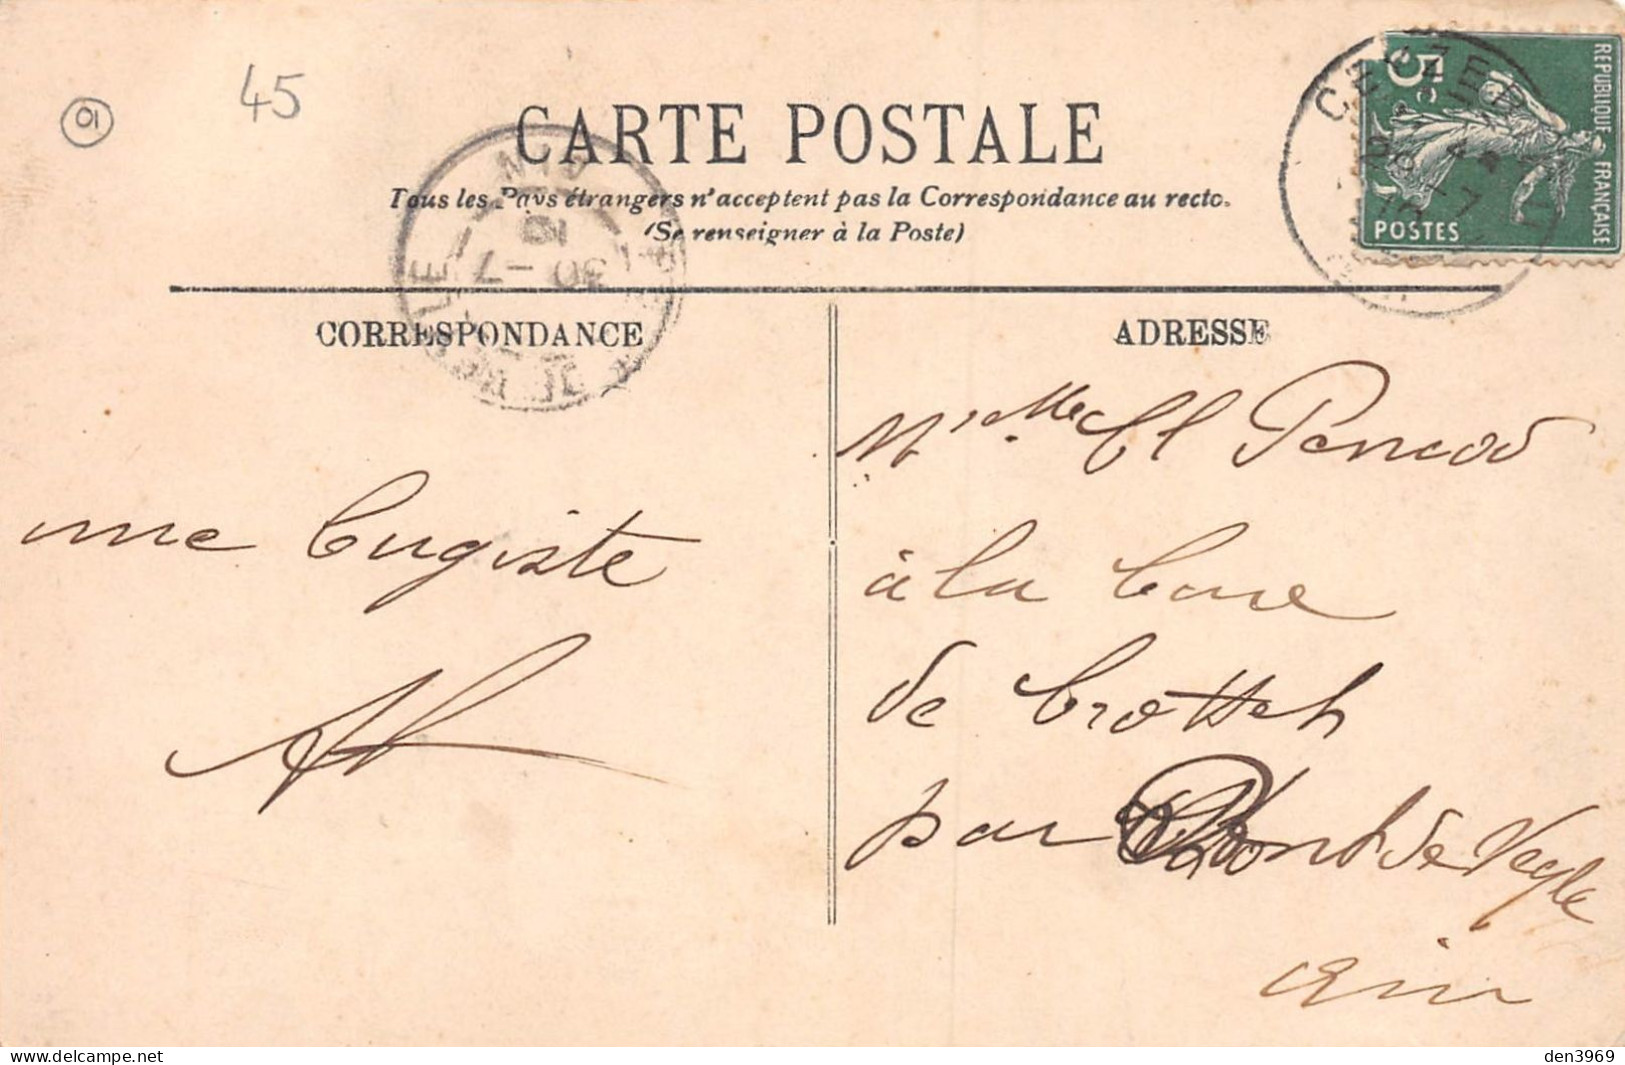 01
45
CARTE POSTALE
Tous les Pays étrangers n'acceptent pas la Correspondance au recto.
(Se renseigner à la Poste)
CORRESPONDANCE
ADRESSE
REPUBLIQUE FRANÇAISE
5c
POSTES
29 -7
10
AIN
10
30 -7
une Cugiste
à la Cure
de Crottet
par Pont de Veyle
Ain
den3969